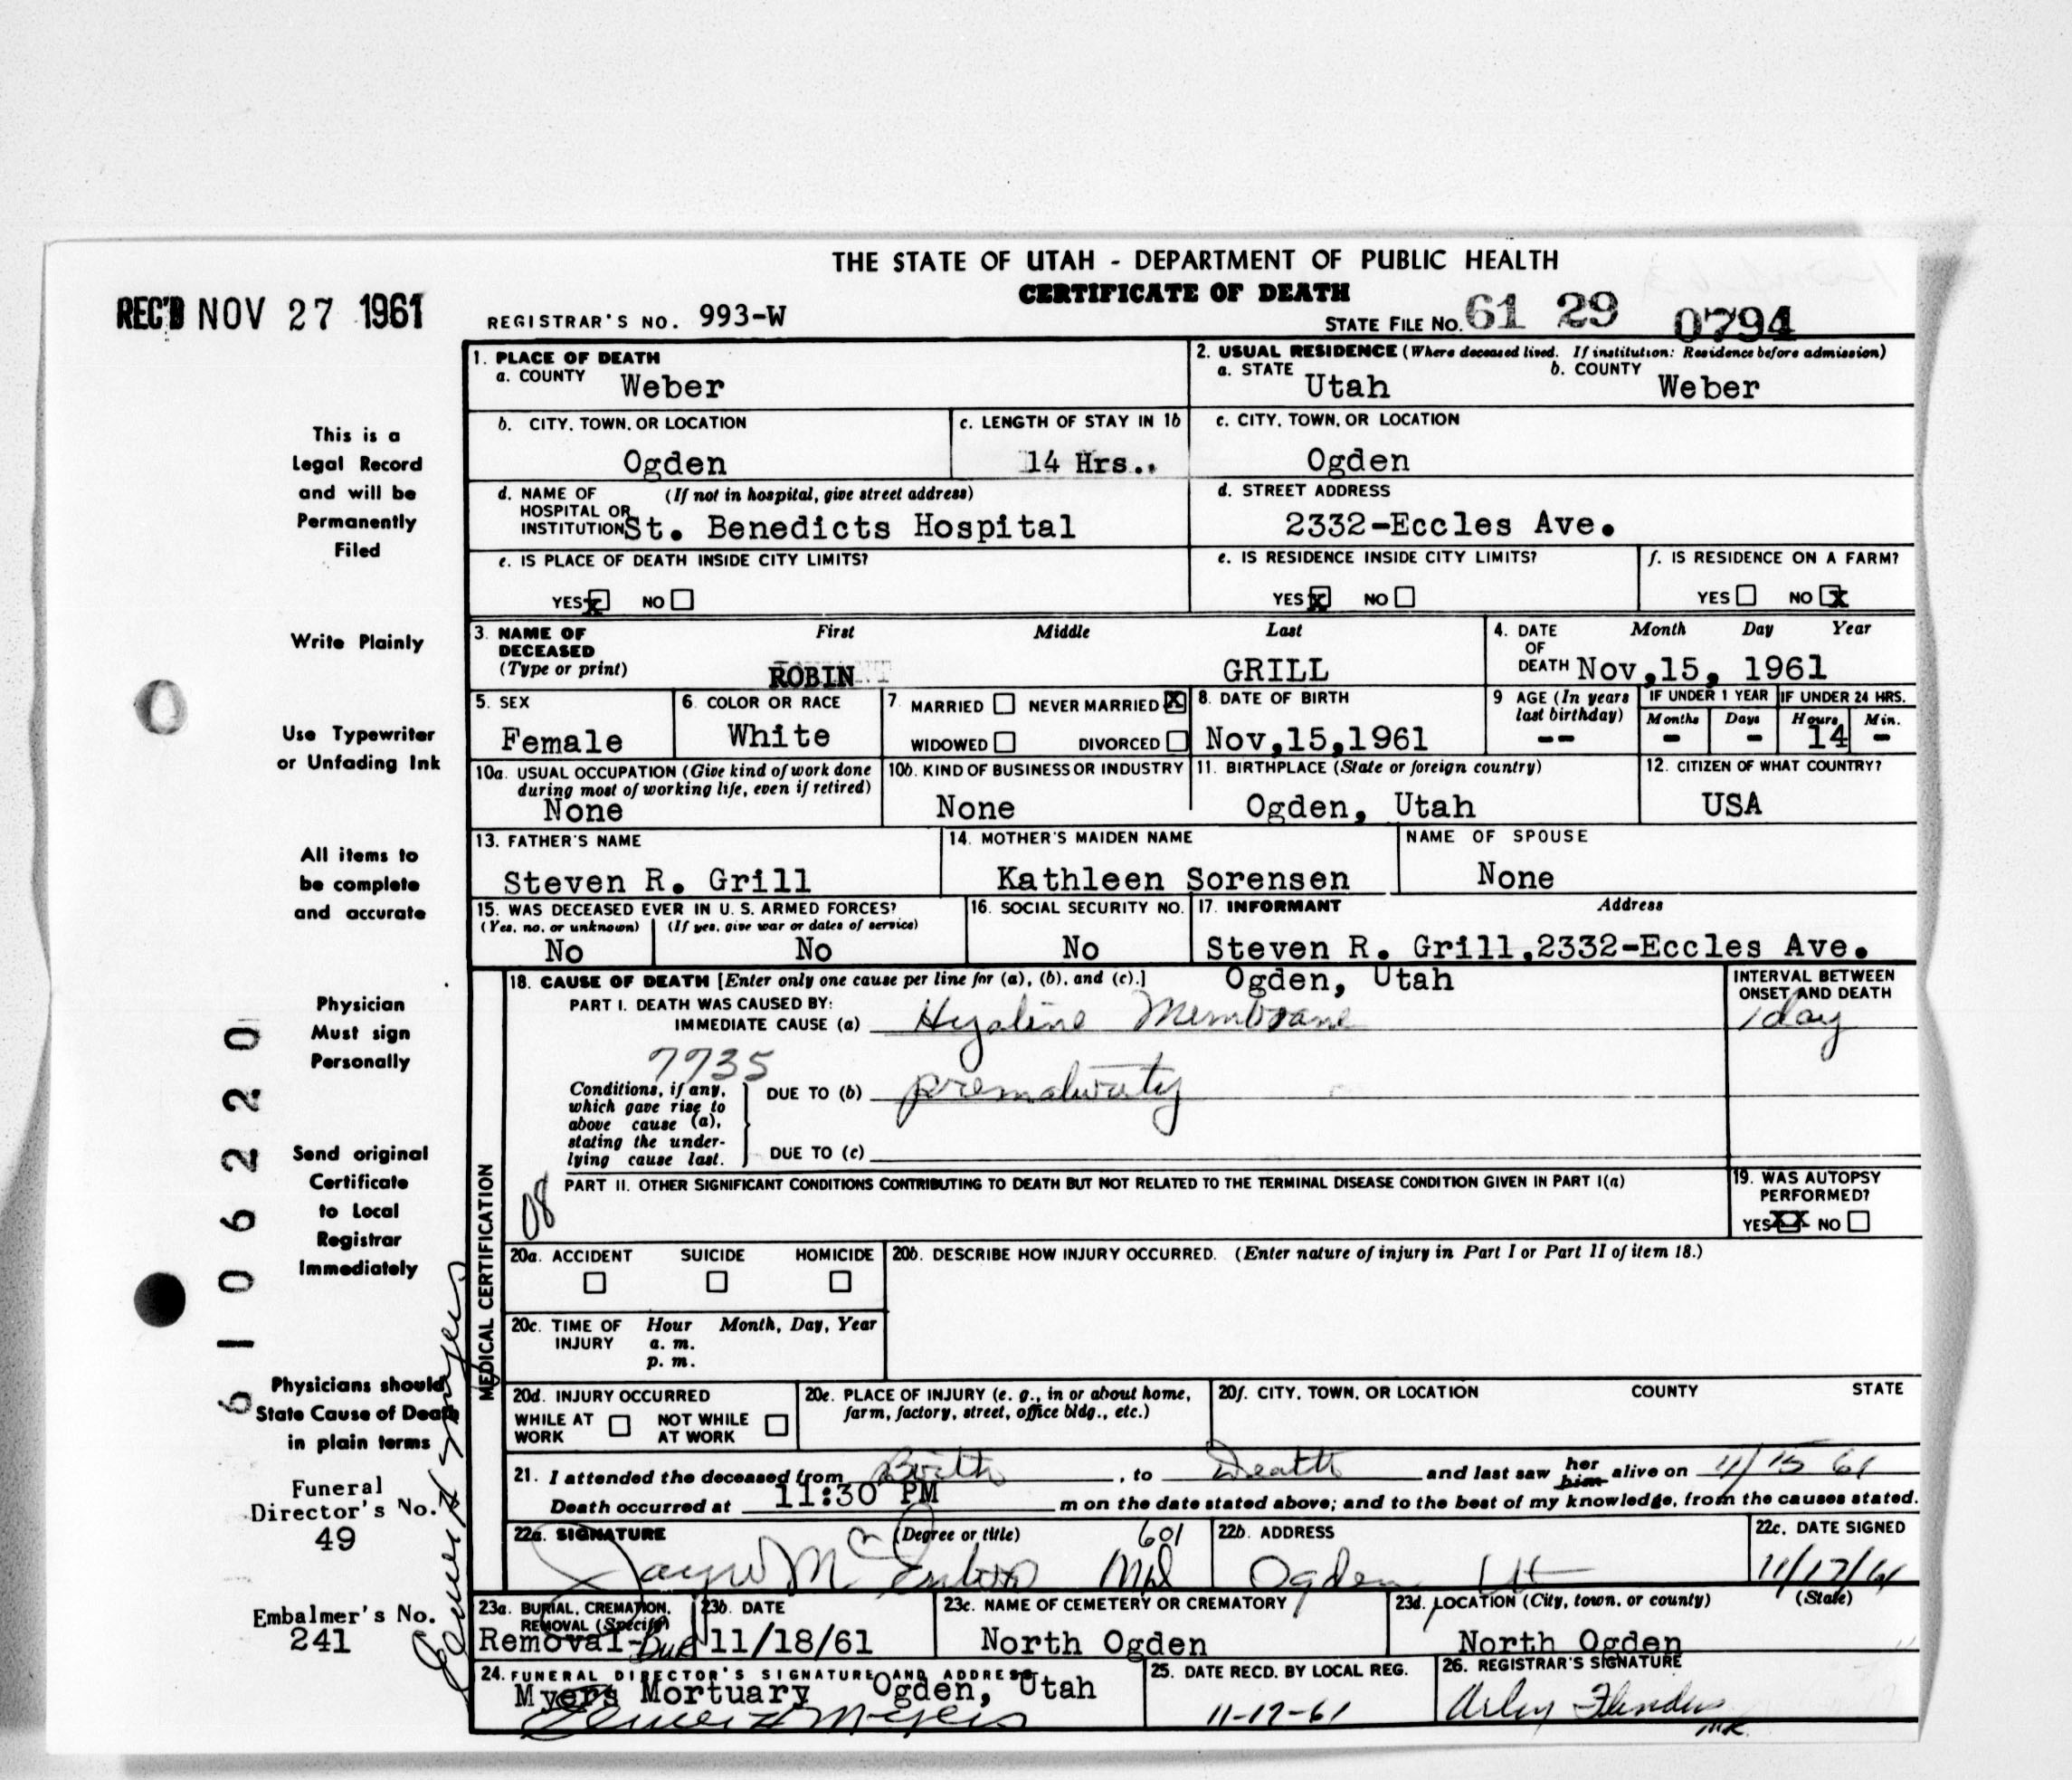 THE STATE OF UTAH - DEPARTMENT OF PUBLIC HEALTH
CERTIFICATE OF DEATH
REC'D NOV 27 1961
REGISTRAR'S NO. 993-W
STATE FILE NO. 61 29 0794
1. PLACE OF DEATH
a. COUNTY Weber
2. USUAL RESIDENCE (Where deceased lived. If institution: Residence before admission)
a. STATE Utah b. COUNTY Weber
b. CITY, TOWN, OR LOCATION Ogden
c. LENGTH OF STAY IN 1b 14 Hrs..
c. CITY, TOWN, OR LOCATION Ogden
d. NAME OF HOSPITAL OR INSTITUTION (If not in hospital, give street address) St. Benedicts Hospital
d. STREET ADDRESS 2332-Eccles Ave.
e. IS PLACE OF DEATH INSIDE CITY LIMITS? YES X NO
e. IS RESIDENCE INSIDE CITY LIMITS? YES X NO
f. IS RESIDENCE ON A FARM? YES NO X
3. NAME OF DECEASED (Type or print) First Middle Last
ROBIN GRILL
4. DATE OF DEATH Month Day Year
Nov,15, 1961
5. SEX Female
6. COLOR OR RACE White
7. MARRIED NEVER MARRIED X WIDOWED DIVORCED
8. DATE OF BIRTH Nov,15,1961
9 AGE (In years last birthday) --
IF UNDER 1 YEAR Months - Days -
IF UNDER 24 HRS. Hours 14 Min. -
10a. USUAL OCCUPATION (Give kind of work done during most of working life, even if retired) None
10b. KIND OF BUSINESS OR INDUSTRY None
11. BIRTHPLACE (State or foreign country) Ogden, Utah
12. CITIZEN OF WHAT COUNTRY? USA
13. FATHER'S NAME Steven R. Grill
14. MOTHER'S MAIDEN NAME Kathleen Sorensen
NAME OF SPOUSE None
15. WAS DECEASED EVER IN U. S. ARMED FORCES?
(Yes, no, or unknown) No (If yes, give war or dates of service) No
16. SOCIAL SECURITY NO. No
17. INFORMANT Address
Steven R. Grill,2332-Eccles Ave.
Ogden, Utah
MEDICAL CERTIFICATION
18. CAUSE OF DEATH [Enter only one cause per line for (a), (b), and (c).]
PART I. DEATH WAS CAUSED BY:
IMMEDIATE CAUSE (a) Hyaline Membrane
INTERVAL BETWEEN ONSET AND DEATH 1 day
7735
Conditions, if any, which gave rise to above cause (a), stating the underlying cause last.
DUE TO (b) prematurity
DUE TO (c)
08
PART II. OTHER SIGNIFICANT CONDITIONS CONTRIBUTING TO DEATH BUT NOT RELATED TO THE TERMINAL DISEASE CONDITION GIVEN IN PART I(a)
19. WAS AUTOPSY PERFORMED? YES XX NO
20a. ACCIDENT SUICIDE HOMICIDE
20b. DESCRIBE HOW INJURY OCCURRED. (Enter nature of injury in Part I or Part II of item 18.)
20c. TIME OF INJURY Hour a. m. p. m. Month, Day, Year
20d. INJURY OCCURRED WHILE AT WORK NOT WHILE AT WORK
20e. PLACE OF INJURY (e. g., in or about home, farm, factory, street, office bldg., etc.)
20f. CITY, TOWN, OR LOCATION COUNTY STATE
21. I attended the deceased from Birth, to Death and last saw her him alive on 11/15 61
Death occurred at 11:30 PM m on the date stated above; and to the best of my knowledge, from the causes stated.
22a. SIGNATURE (Degree or title) 601
MD
22b. ADDRESS Ogden Ut
22c. DATE SIGNED 11/17/61
23a. BURIAL, CREMATION, REMOVAL (Specify) Removal-Bur
23b. DATE 11/18/61
23c. NAME OF CEMETERY OR CREMATORY North Ogden
23d. LOCATION (City, town, or county) (State) North Ogden
24. FUNERAL DIRECTOR'S SIGNATURE AND ADDRESS
Myers Mortuary Ogden, Utah
25. DATE RECD. BY LOCAL REG. 11-17-61
26. REGISTRAR'S SIGNATURE
This is a
Legal Record
and will be
Permanently
Filed
Write Plainly
Use Typewriter
or Unfading Ink
All items to
be complete
and accurate
Physician
Must sign
Personally
Send original
Certificate
to Local
Registrar
Immediately
Physicians should
State Cause of Death
in plain terms
Funeral
Director's No.
49
Embalmer's No.
241
6 1 0 6 2 2 0